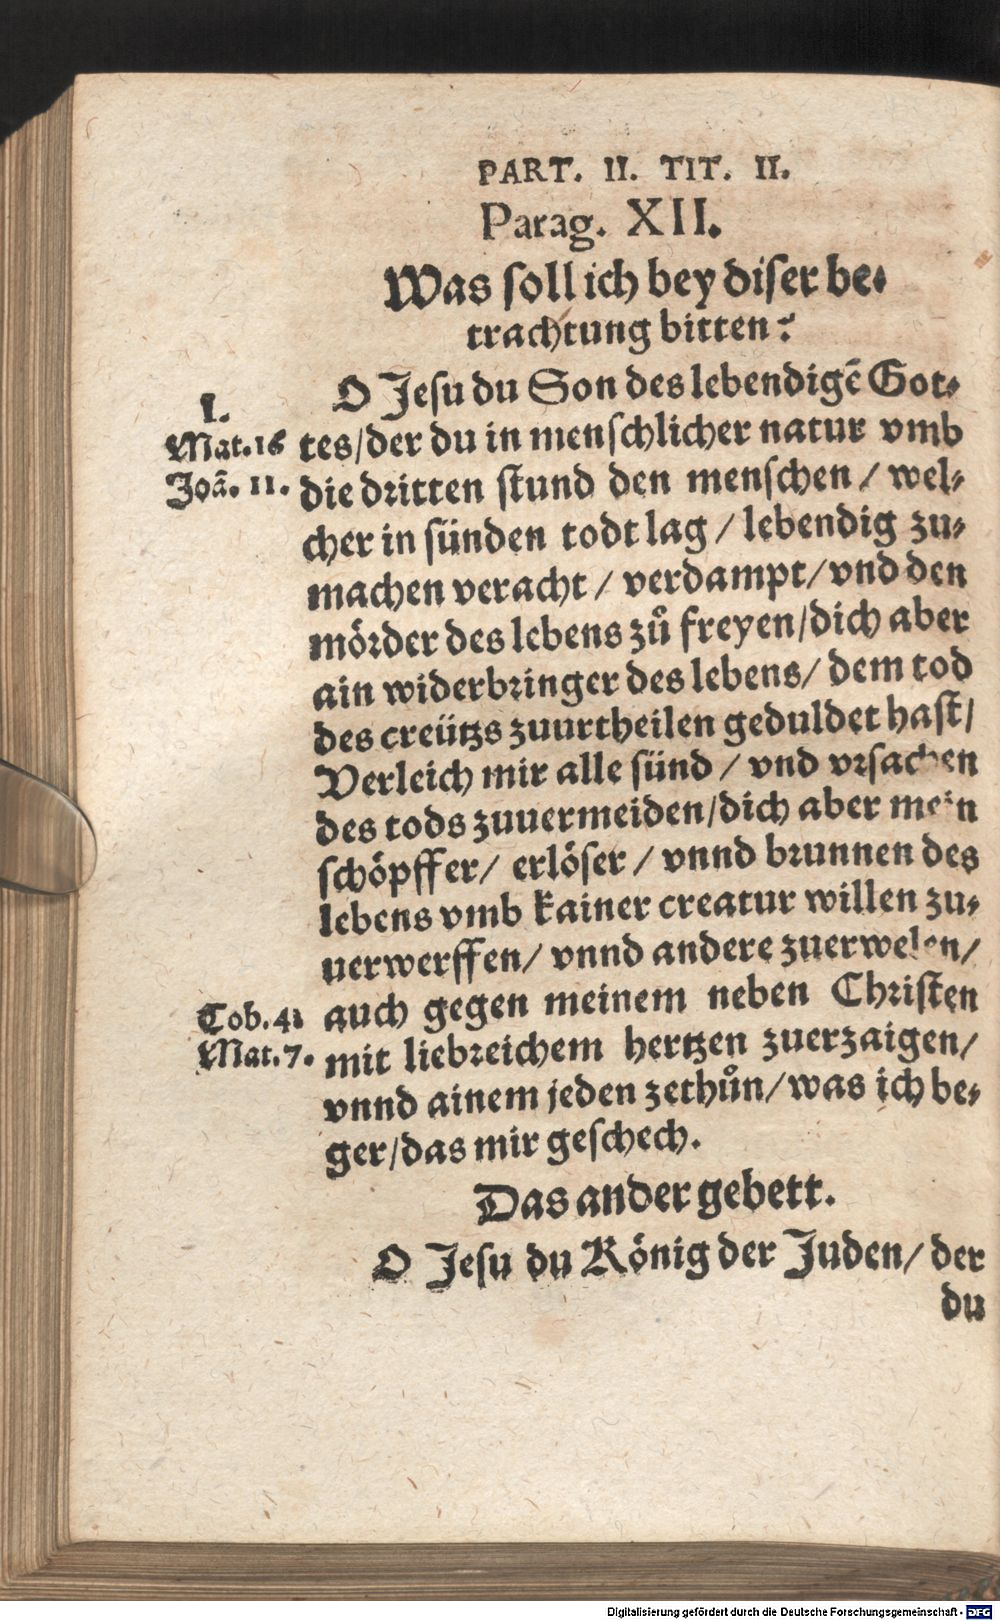 PART. II. TIT. II.
Parag. XII.
Was soll ich bey diser be⸗
trachtung bitten?
I.
Mat.16
Joã. 11.
O Jesu du Son des lebendigē Got⸗
tes/der du in menschlicher natur vmb
die dritten stund den menschen / wel⸗
cher in sünden todt lag / lebendig zu⸗
machen veracht / verdampt/vnd den
mörder des lebens zů freyen/dich aber
ain widerbringer des lebens/ dem tod
des creützs zuurtheilen geduldet hast/
Verleich mir alle sünd / vnd vrsachen
des tods zuuermeiden/dich aber mein
schöpffer/ erlöser / vnnd brunnen des
lebens vmb kainer creatur willen zu⸗
uerwerffen/ vnnd andere zuerwelen/
Tob.4.
Mat.7.
auch gegen meinem neben Christen
mit liebreichem hertzen zuerzaigen/
vnnd ainem jeden zethůn/was ich be⸗
ger/das mir geschech.
Das ander gebett.
O Jesu du König der Juden/ der
du
Digitalisierung gefördert durch die Deutsche Forschungsgemeinschaft - DFG